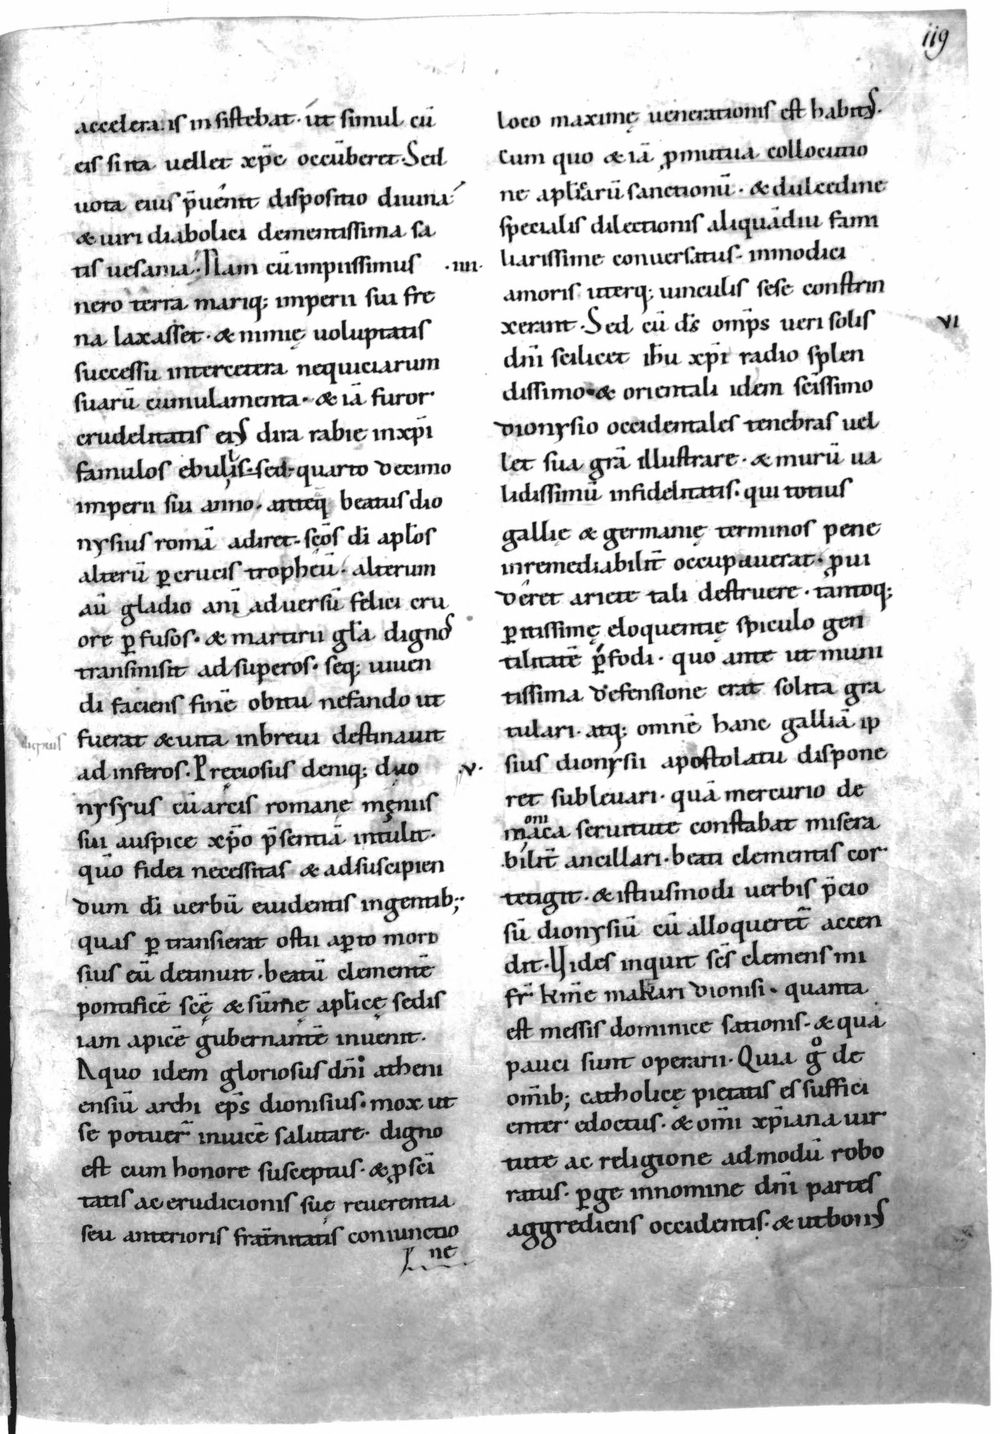 119
acceleratis insistebat· ut simul cū
eis si ita uellet xp̄c occūberet· Sed
uota eius p̄uenit dispositio diuina
& uiri diabolici dementissima sa
tis uesania· Nam cū impiissimus ·iiii·
nero terra mariq; imperii sui fre
na laxasset· & nimię uoluptatis
successu intercetera nequiciarum
suarū cumulamenta· & iā furor
crudelitatis eiꝰ dira rabie inxp̄i
famulos ebulisset· sed quarto decimo
imperii siu anno· anteq̄ beatus dio
nysius romā adiret· sc̄os dī apl̄os
alterū ꝑ crucis tropheū· alterum
aū gladio anī aduersū felici cru
ore ꝑfusos· & martirii gl̄a dignos
transmisit ad superos· seq; uiuen
di faciens finē obitu nefando ut
fuerat & uita inbreui destinauit
ad inferos· Preciosus deniq; dyo ·v·
nysyus cū arcis romanę męniis
sui auspice xp̄o p̄sentiā intulit·
quō fidei necessitas & adsuscipien
dum dī uerbū euidentis ingentib;
quas ꝑ transierat ostii aꝑto moro
sius eū detinuit· beatū clementē
pontificē sc̄ę & sūmę apl̄icę sedis
iam apicē gubernantē inuenit·
A quo idem gloriosus dn̄i atheni
ensiū archi ep̄s dionisius· mox ut
se potuer̄ inuicē salutare· digno
est cum honore susceptus· & ꝓ sc̄i
tatis ac erudicionis suę reuerentia
seu anterioris frat̄nitatis coniunctio
ne
loco maximę uenerationis est habitꝰ·
Cum quo & iā ꝓmutua collocutio
ne apl̄icarū sanctionū· & dulcedine
specialis dilectionis aliquādiu fami
liarissime conuersatus· inmodici
amoris uterq; uinculis sese constrin
xerunt· Sed cū dꝰs omp̄s ueri solis vi
dn̄i scilicet ih̄u xp̄i radio splen
dissimo· & orientali idem sc̄issimo
dionysio occidentales tenebras uel
let sua gr̄a illustrare· & murū ua
lidissimū infidelitatis· qui totius
gallię & germanię terminos pene
inremediabilit̄ occupauerat· ꝓui
dēret ariete tali destruere· tantoq;
ꝑitissimę eloquentię spiculo gen
tilitatē ꝑfodi· quo ante ut muni
tissima defensione erat solita gra
tulari· atq; omnē hanc galliā ip
sius dionysii apostolatu dispone
ret subleuari· quā mercurio de
om
māca seruitute constabat misera
bilit̄ ancillari· beati clementis cor
tetigit· & istiusmodi uerbis p̄cio
sū dionysiū eū alloqueret̄ accen
dit· Vides inquit sc̄s clemens mi
fr̄ kmē makari dionisi· quanta
est messis dominice sationis· & quā
pauci sunt operarii· Quia gͦ de
om̄ib; catholicę pietatis es suffici
enter edoctus· & om̄i xp̄iana uir
tute ac religione admodū robo
ratus· ꝑge innomine dn̄i partes
aggrediens occidentis· & utbonꝰ